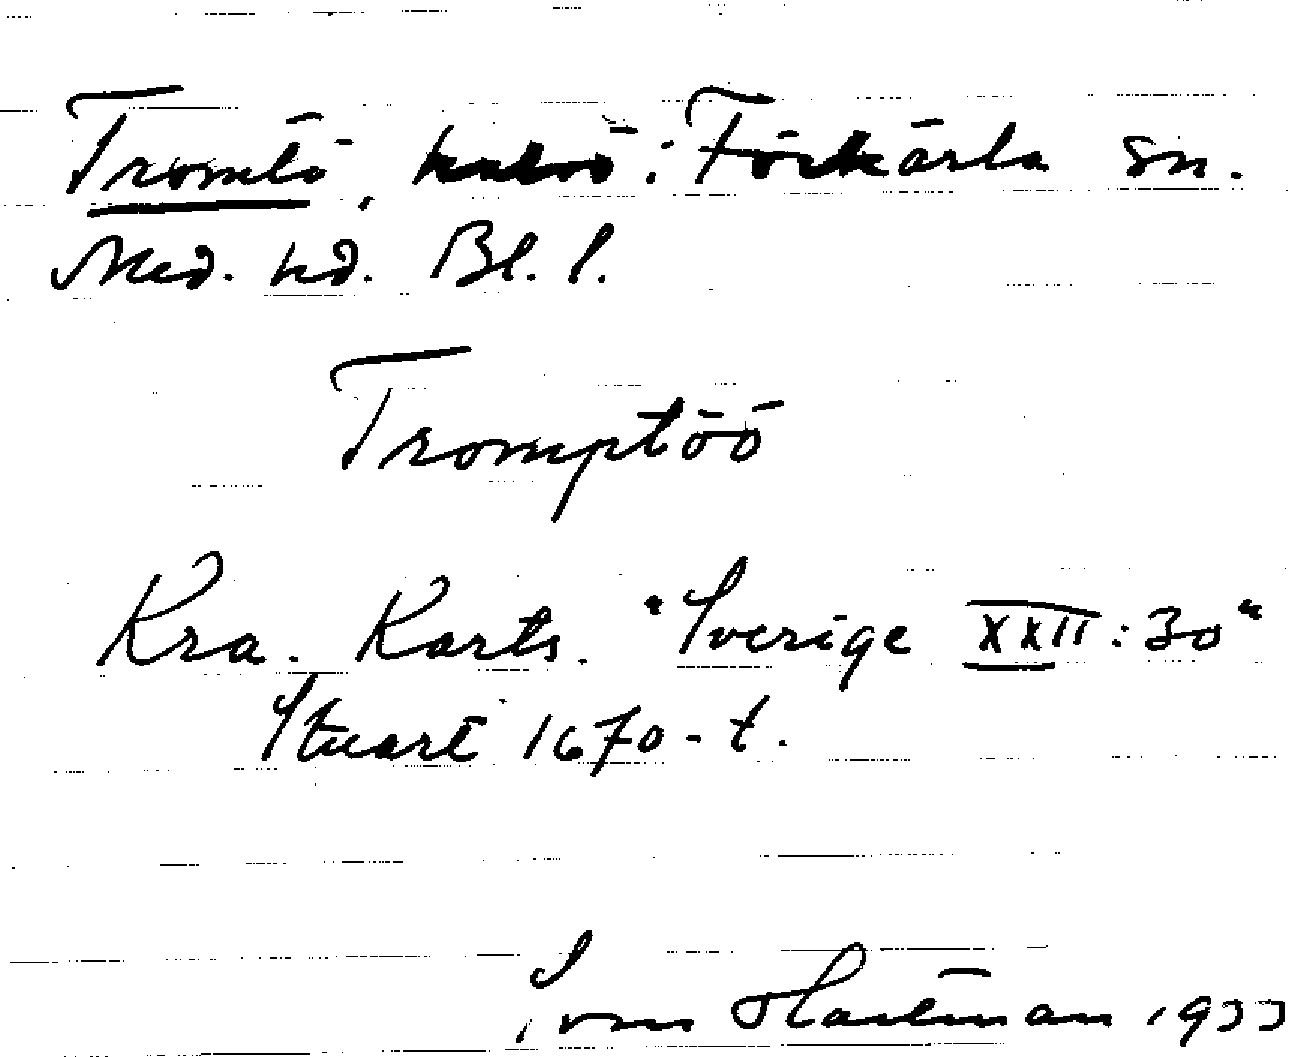 Tromtö, halvö: Förkärla sn.
Med. hd. Bl. l.
Tromptöö
Kra. Karts. "Sverige XXII:30"
Stuart 1670-t.
Sven Hartman 1933